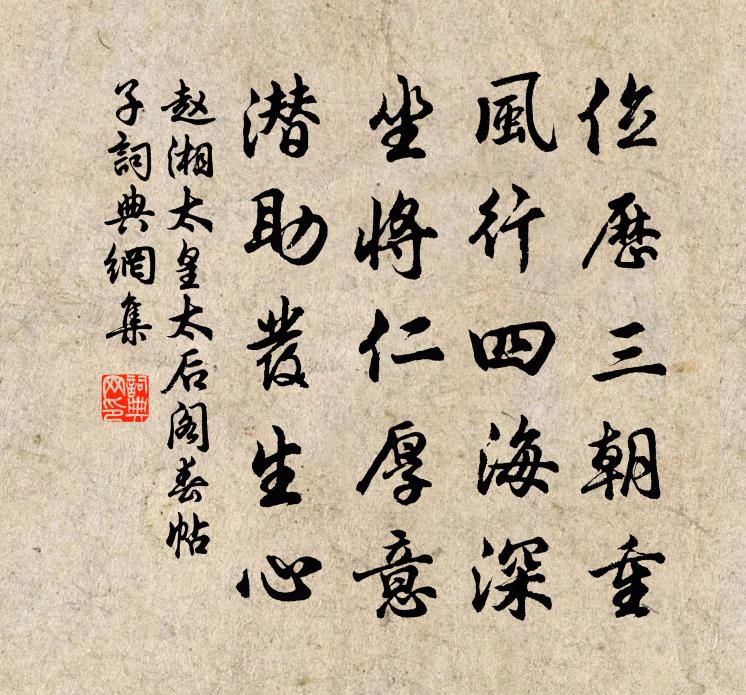 位歷三朝重
風行四海深
坐將仁厚意
潜助發生心
赵湘太皇太后阁春帖
子詞典網集
詞典
网印